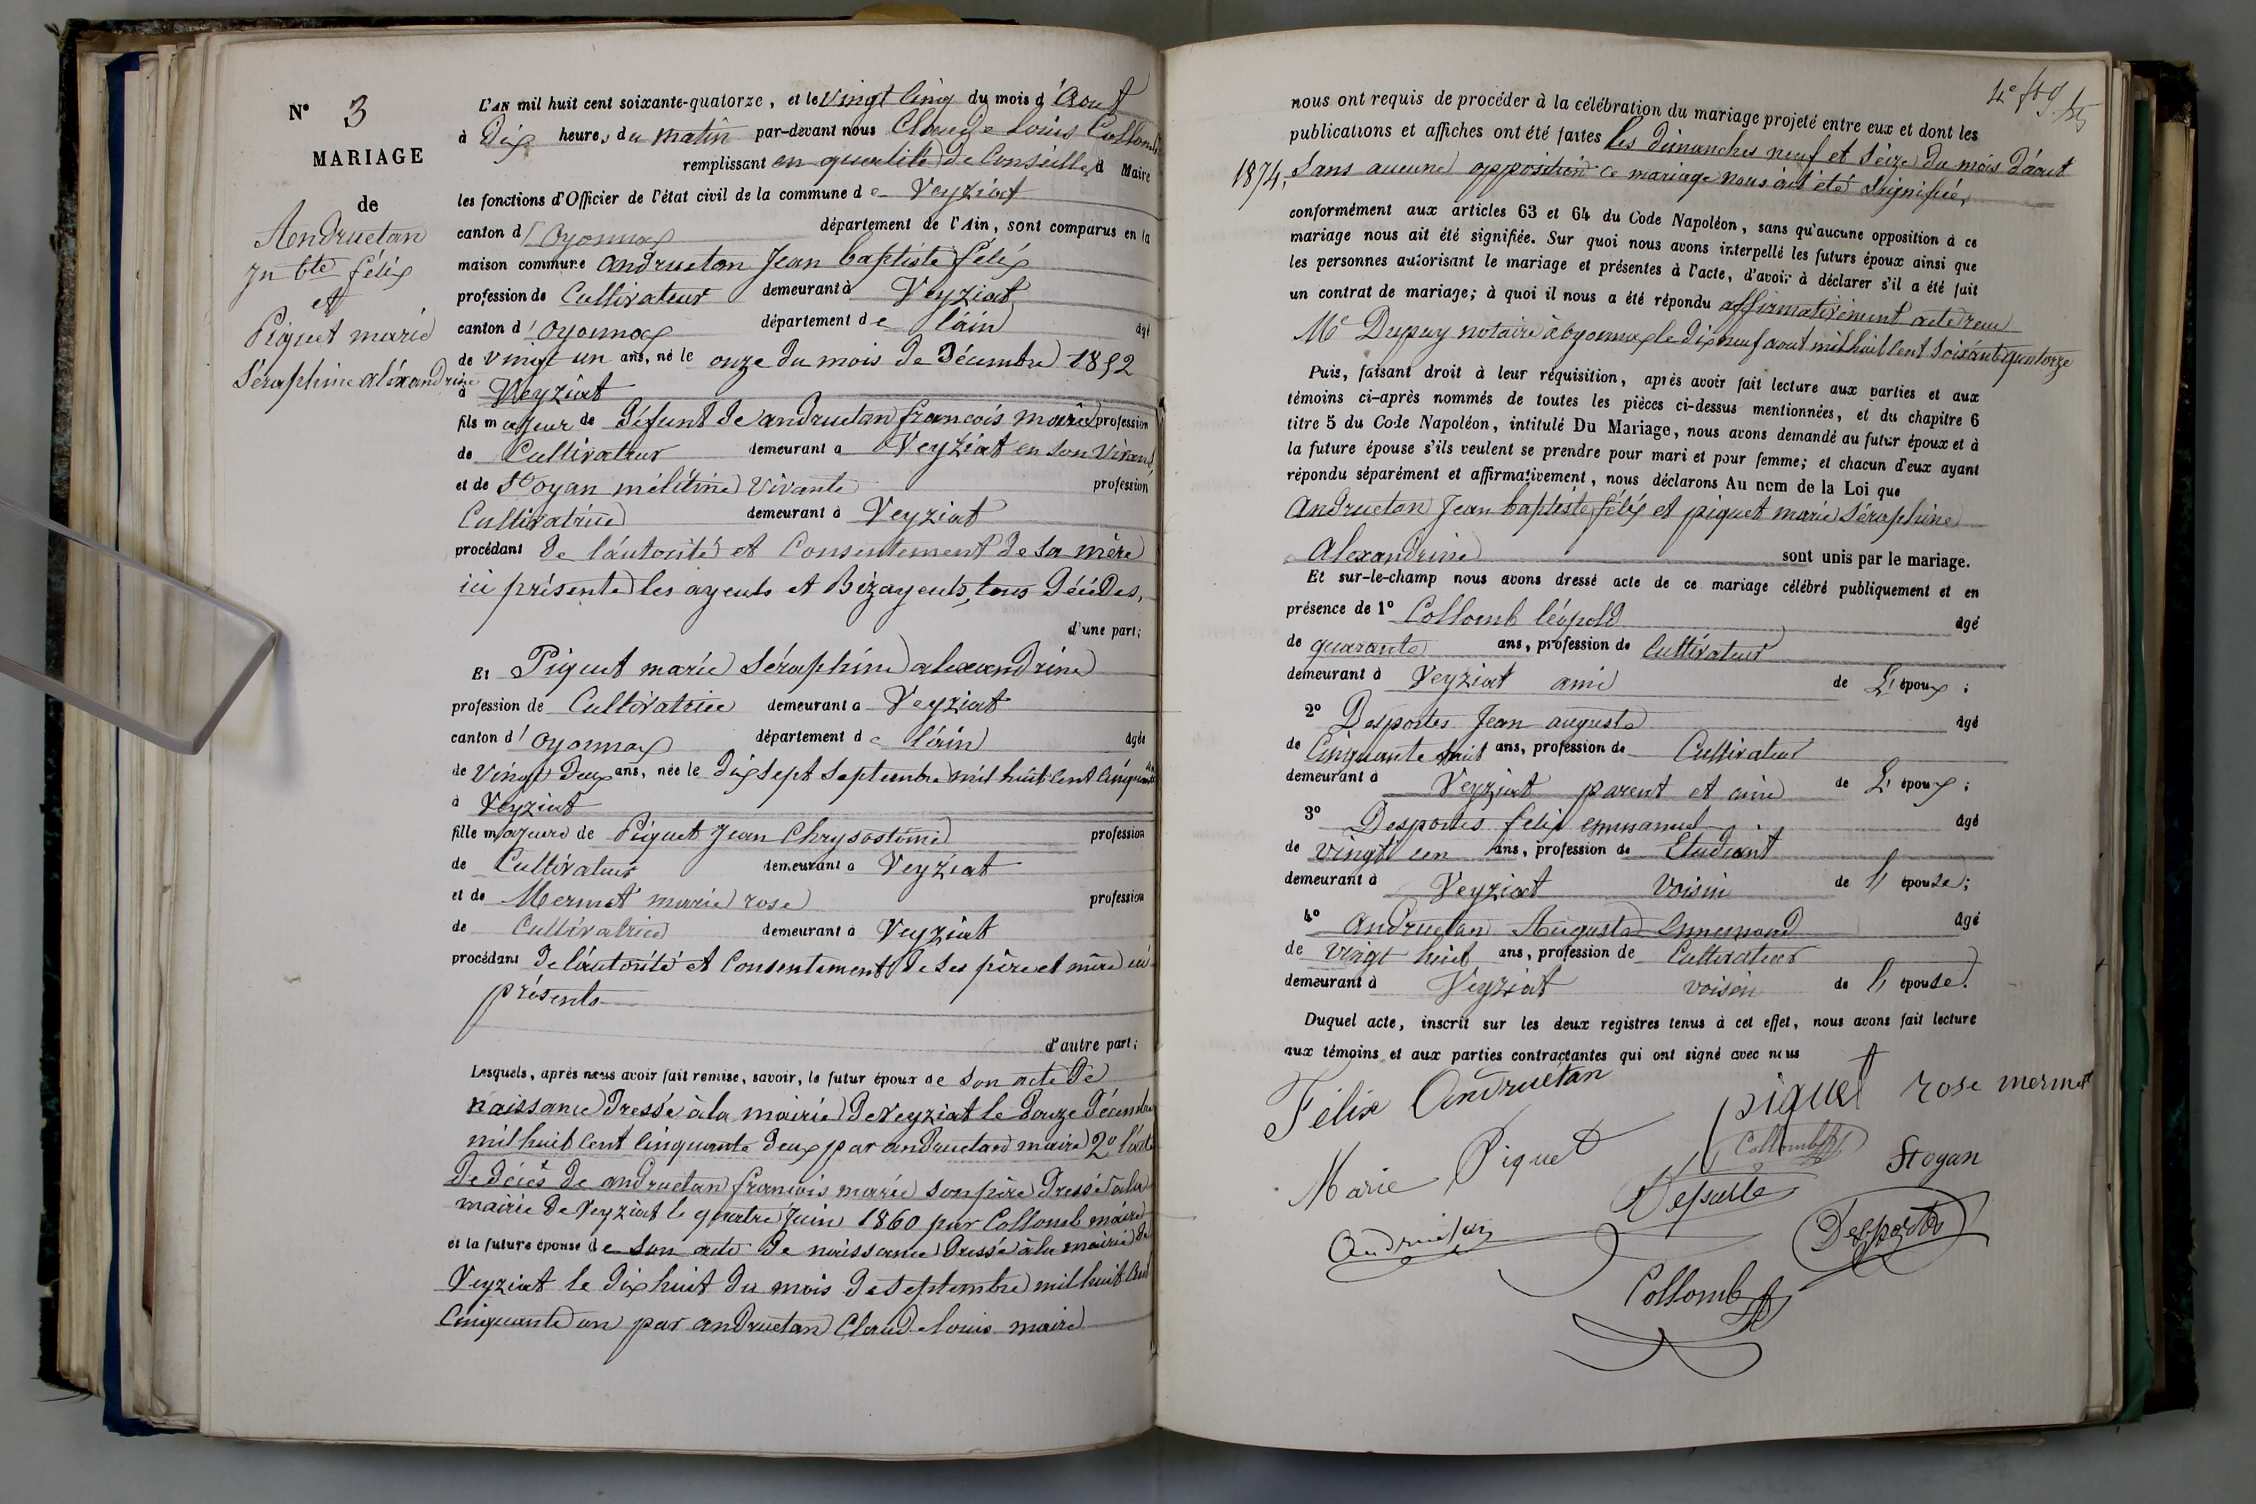 N° 3
MARIAGE
de
Andruetan
Jn bte félix
et
Piquet marie
Séraphine aléxandrine
L'AN mil huit cent soixante-quatorze, et le vingt Cinq du mois d'Aout
à Dix heures du matin par-devant nous Claude Louis Collomb
remplissant en qualité de Conseiller d Maire
les fonctions d'Officier de l'état civil de la commune de Veyziat
canton d'Oyonnax département de l'Ain, sont comparus en la
maison commune andruetan Jean baptiste félix
profession de Cultivateur demeurant à Veyziat
canton d'oyonnax département de l'ain âgé
de vingt un ans, né le onze du mois de Décembre 1852
à Veyziat
fils majeur de défunt de andruetan francois marie profession
de Cultivateur demeurant à Veyziat en son vivant,
et de St oyan mélitine vivante profession
Cultivatrice demeurant à Veyziat
procédant de l'autorité et Consentement de sa mère
ici présente les ayeuls et Bizayeuls, tous décédés,
d'une part;
Et Piquet marie Séraphine alexandrine
profession de Cultivatrice demeurant à Veyziat
canton d'oyonnax département de l'ain âgée
de vingt deux ans, née le dix sept septembre mil huit cent cinquante un
à Veyziat
fille majeure de Piquet Jean Chrysostôme profession
de Cultivateur demeurant à Veyziat
et de Mermet marie rose profession
de Cultivatrice demeurant à Veyziat
procédant de l'autorité et Consentement de ses père et mère ici
présents
d'autre part;
Lesquels, après nous avoir fait remise, savoir, le futur époux de son acte de
naissance dressé à la mairie de veyziat le douze décembre
mil huit cent cinquante deux par andruetan maire 2° l'acte
de décès de andruetan francois marie son père dressé à la
mairie de Veyziat le quatre Juin 1860 par Collomb maire
et la future épouse de son acte de naissance dressé à la mairie de
Veyziat le dix huit du mois de septembre mil huit cent
Cinquante un par andruetan Claude louis maire
4e
nous ont requis de procéder à la célébration du mariage projeté entre eux et dont les
publications et affiches ont été faites les dimanches neuf et seize du mois d'aout
1874, sans aucune opposition ce mariage nous ait été signifiée,
conformément aux articles 63 et 64 du Code Napoléon, sans qu'aucune opposition à ce
mariage nous ait été signifiée. Sur quoi nous avons interpellé les futurs époux ainsi que
les personnes autorisant le mariage et présentes à l'acte, d'avoir à déclarer s'il a été fait
un contrat de mariage; à quoi il nous a été répondu affirmativement acte reçu
Me Dupuy notaire à oyonnax le dix neuf aout mil huit cent soixante quatorze
Puis, faisant droit à leur réquisition, après avoir fait lecture aux parties et aux
témoins ci-après nommés de toutes les pièces ci-dessus mentionnées, et du chapitre 6
titre 5 du Code Napoléon, intitulé Du Mariage, nous avons demandé au futur époux et à
la future épouse s'ils veulent se prendre pour mari et pour femme; et chacun d'eux ayant
répondu séparément et affirmativement, nous déclarons Au nom de la Loi que
Andruetan Jean baptiste félix et piquet marie Séraphine
Alexandrine sont unis par le mariage.
Et sur-le-champ nous avons dressé acte de ce mariage célébré publiquement et en
présence de 1° Collomb léopold âgé
de quarante ans, profession de Cultivateur
demeurant à Veyziat ami de L'époux;
2° Desportes Jean auguste âgé
de Cinquante huit ans, profession de Cultivateur
demeurant à Veyziat parent et ami de L'époux;
3° Desportes félix emmanuel âgé
de vingt un ans, profession de Etudiant
demeurant à Veyziat voisin de l'épouse;
4° andruetan Auguste Ennemond âgé
de vingt huit ans, profession de Cultivateur
demeurant à Veyziat voisin de l'épouse.
Duquel acte, inscrit sur les deux registres tenus à cet effet, nous avons fait lecture
aux témoins et aux parties contractantes qui ont signé avec nous
Félix Andruetan piquet rose mermet
Marie Piquet Collomb Stoyan
Desporte
Andruetan Desportes
Collomb